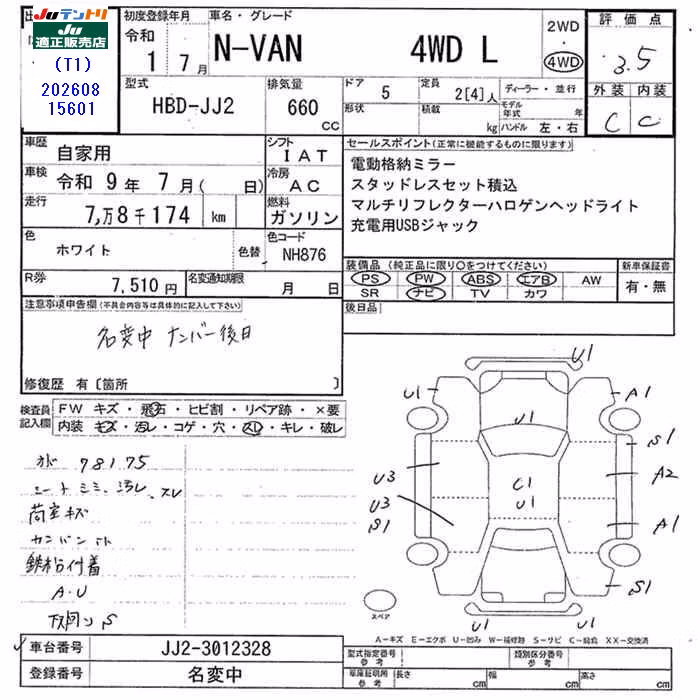 JUテントリ
適正販売店
(T1)
202608
15601
初度登録年月
令和
1 7月
車名・グレード
N-VAN 4WD L
2WD
・
4WD
評価点
3.5
外装 内装
C C
型式
HBD-JJ2
排気量
660 CC
ドア 5
形状
定員 2[4]人
積載 kg
ディーラー・並行
モデル年式 年
ハンドル 左・右
車歴
自家用
シフト
IAT
車検 令和 9年 7月( 日)
冷房
AC
走行
7,万8千174 km
燃料
ガソリン
色
ホワイト
色替
色コード
NH876
R券
7,510円
名変通知期限
月 日
セールスポイント(正常に機能するものに限ります)
電動格納ミラー
スタッドレスセット積込
マルチリフレクターハロゲンヘッドライト
充電用USBジャック
装備品(純正品に限り○をつけてください)
PS PW ABS エアB AW
SR ナビ TV カワ
新車保証書
有・無
後日品
注意事項申告欄(不具合内容等は具体的に記入して下さい)
名変中 ナンバー後日
修復歴 有〔箇所 〕
検査員
記入欄
FW キズ・飛石・ヒビ割・リペア跡・×要
内装・キズ・汚レ・コゲ・穴・スレ・キレ・破レ
78175
シートシミ、汚レ、スレ
荷室キズ
カンバン跡
付着
A・U
下廻り S
U1
U1
A1
U1
S1
U3
A2
C1
U1
U3
S1
A1
S1
U1
U1
スペア
A-キズ E-エクボ U-凹み W-補修跡 S-サビ C-腐食 XX-交換済
車台番号
JJ2-3012328
登録番号
名変中
型式指定番号
参考
類別区分番号
参考
車庫証明用
参考
長さ cm 幅 cm 高さ cm